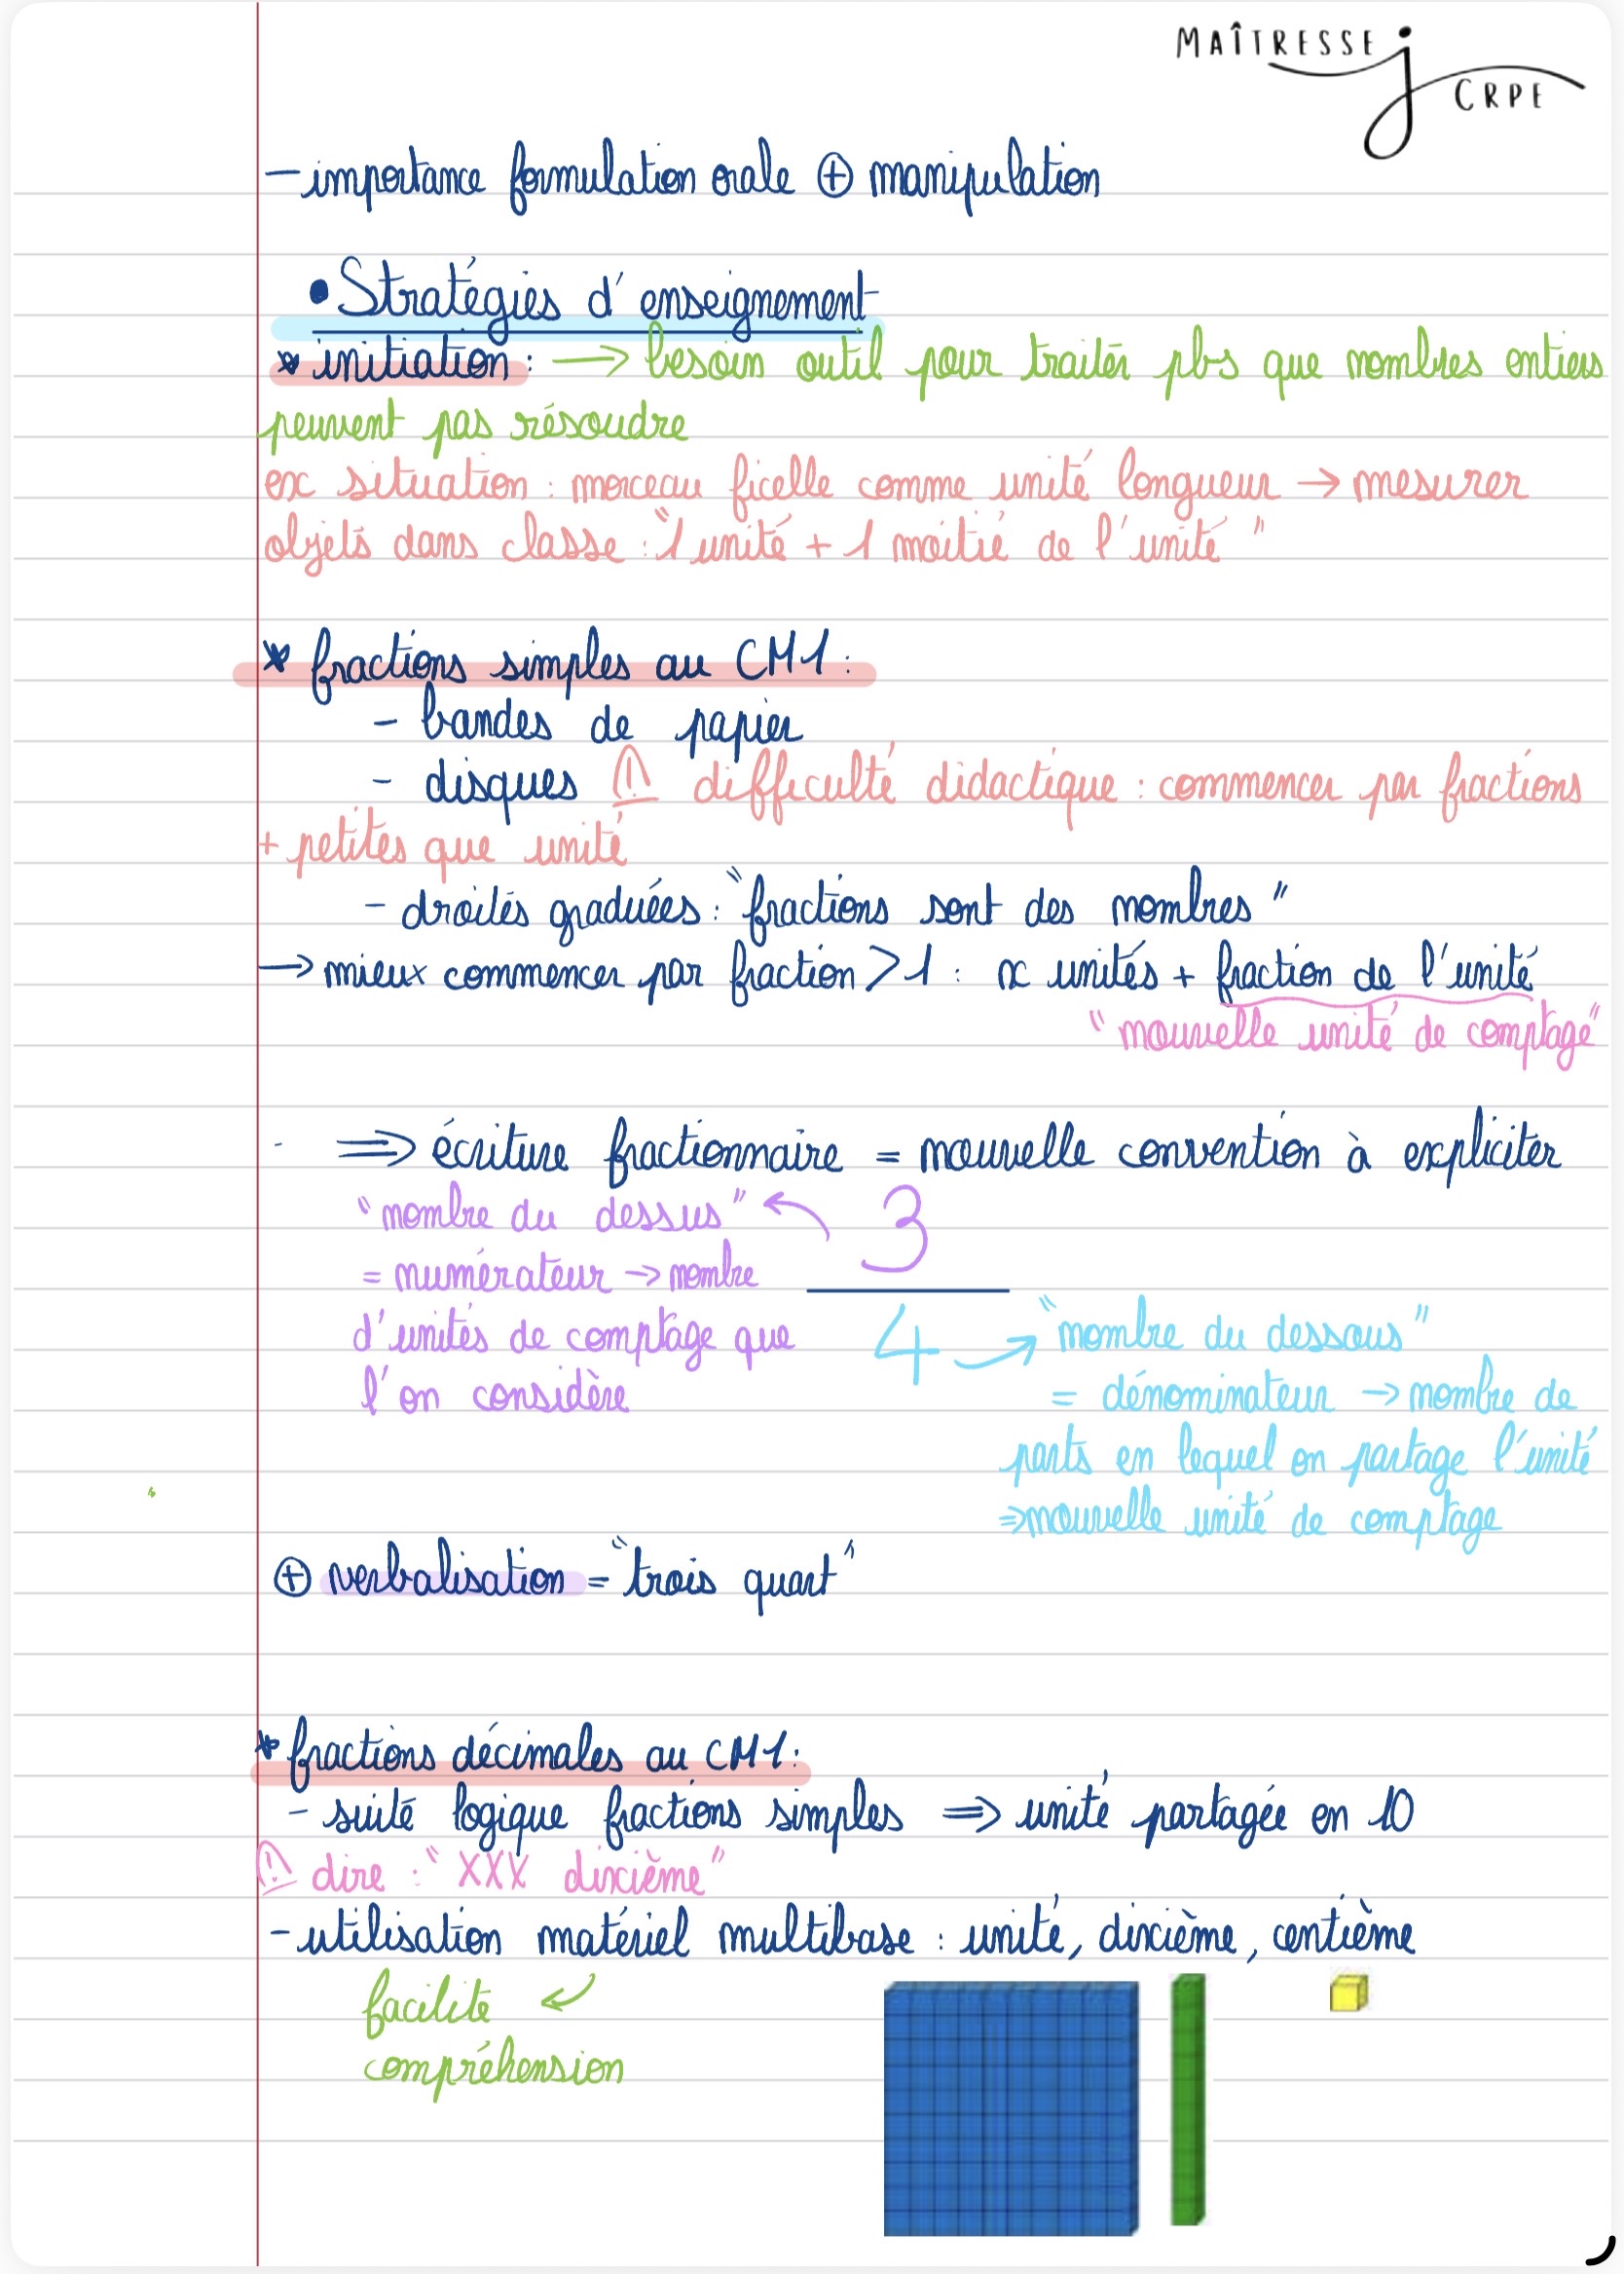 MAÎTRESSE J CRPE
- importance formulation orale ⊕ manipulation
• Stratégies d'enseignement
* initiation : → besoin outil pour traiter pbs que nombres entiers
peuvent pas résoudre
ex situation : morceau ficelle comme unité longueur → mesurer
objets dans classe : "1 unité + 1 moitié de l'unité"
* fractions simples au CM1 :
- bandes de papier
- disques ⚠ difficulté didactique : commencer par fractions
+ petites que unité
- droites graduées : "fractions sont des nombres"
→ mieux commencer par fraction > 1 : x unités + fraction de l'unité
"nouvelle unité de comptage"
⇒ écriture fractionnaire = nouvelle convention à expliciter
"nombre du dessus" ← 3
= numérateur → nombre
d'unités de comptage que
l'on considère
4 → "nombre du dessous"
= dénominateur → nombre de
parts en lequel on partage l'unité
⇒ nouvelle unité de comptage
⊕ verbalisation = "trois quart"
* fractions décimales au CM1 :
- suite logique fractions simples ⇒ unité partagée en 10
⚠ dire : "XXX dixième"
- utilisation matériel multibase : unité, dixième, centième
facilite ↙
compréhension